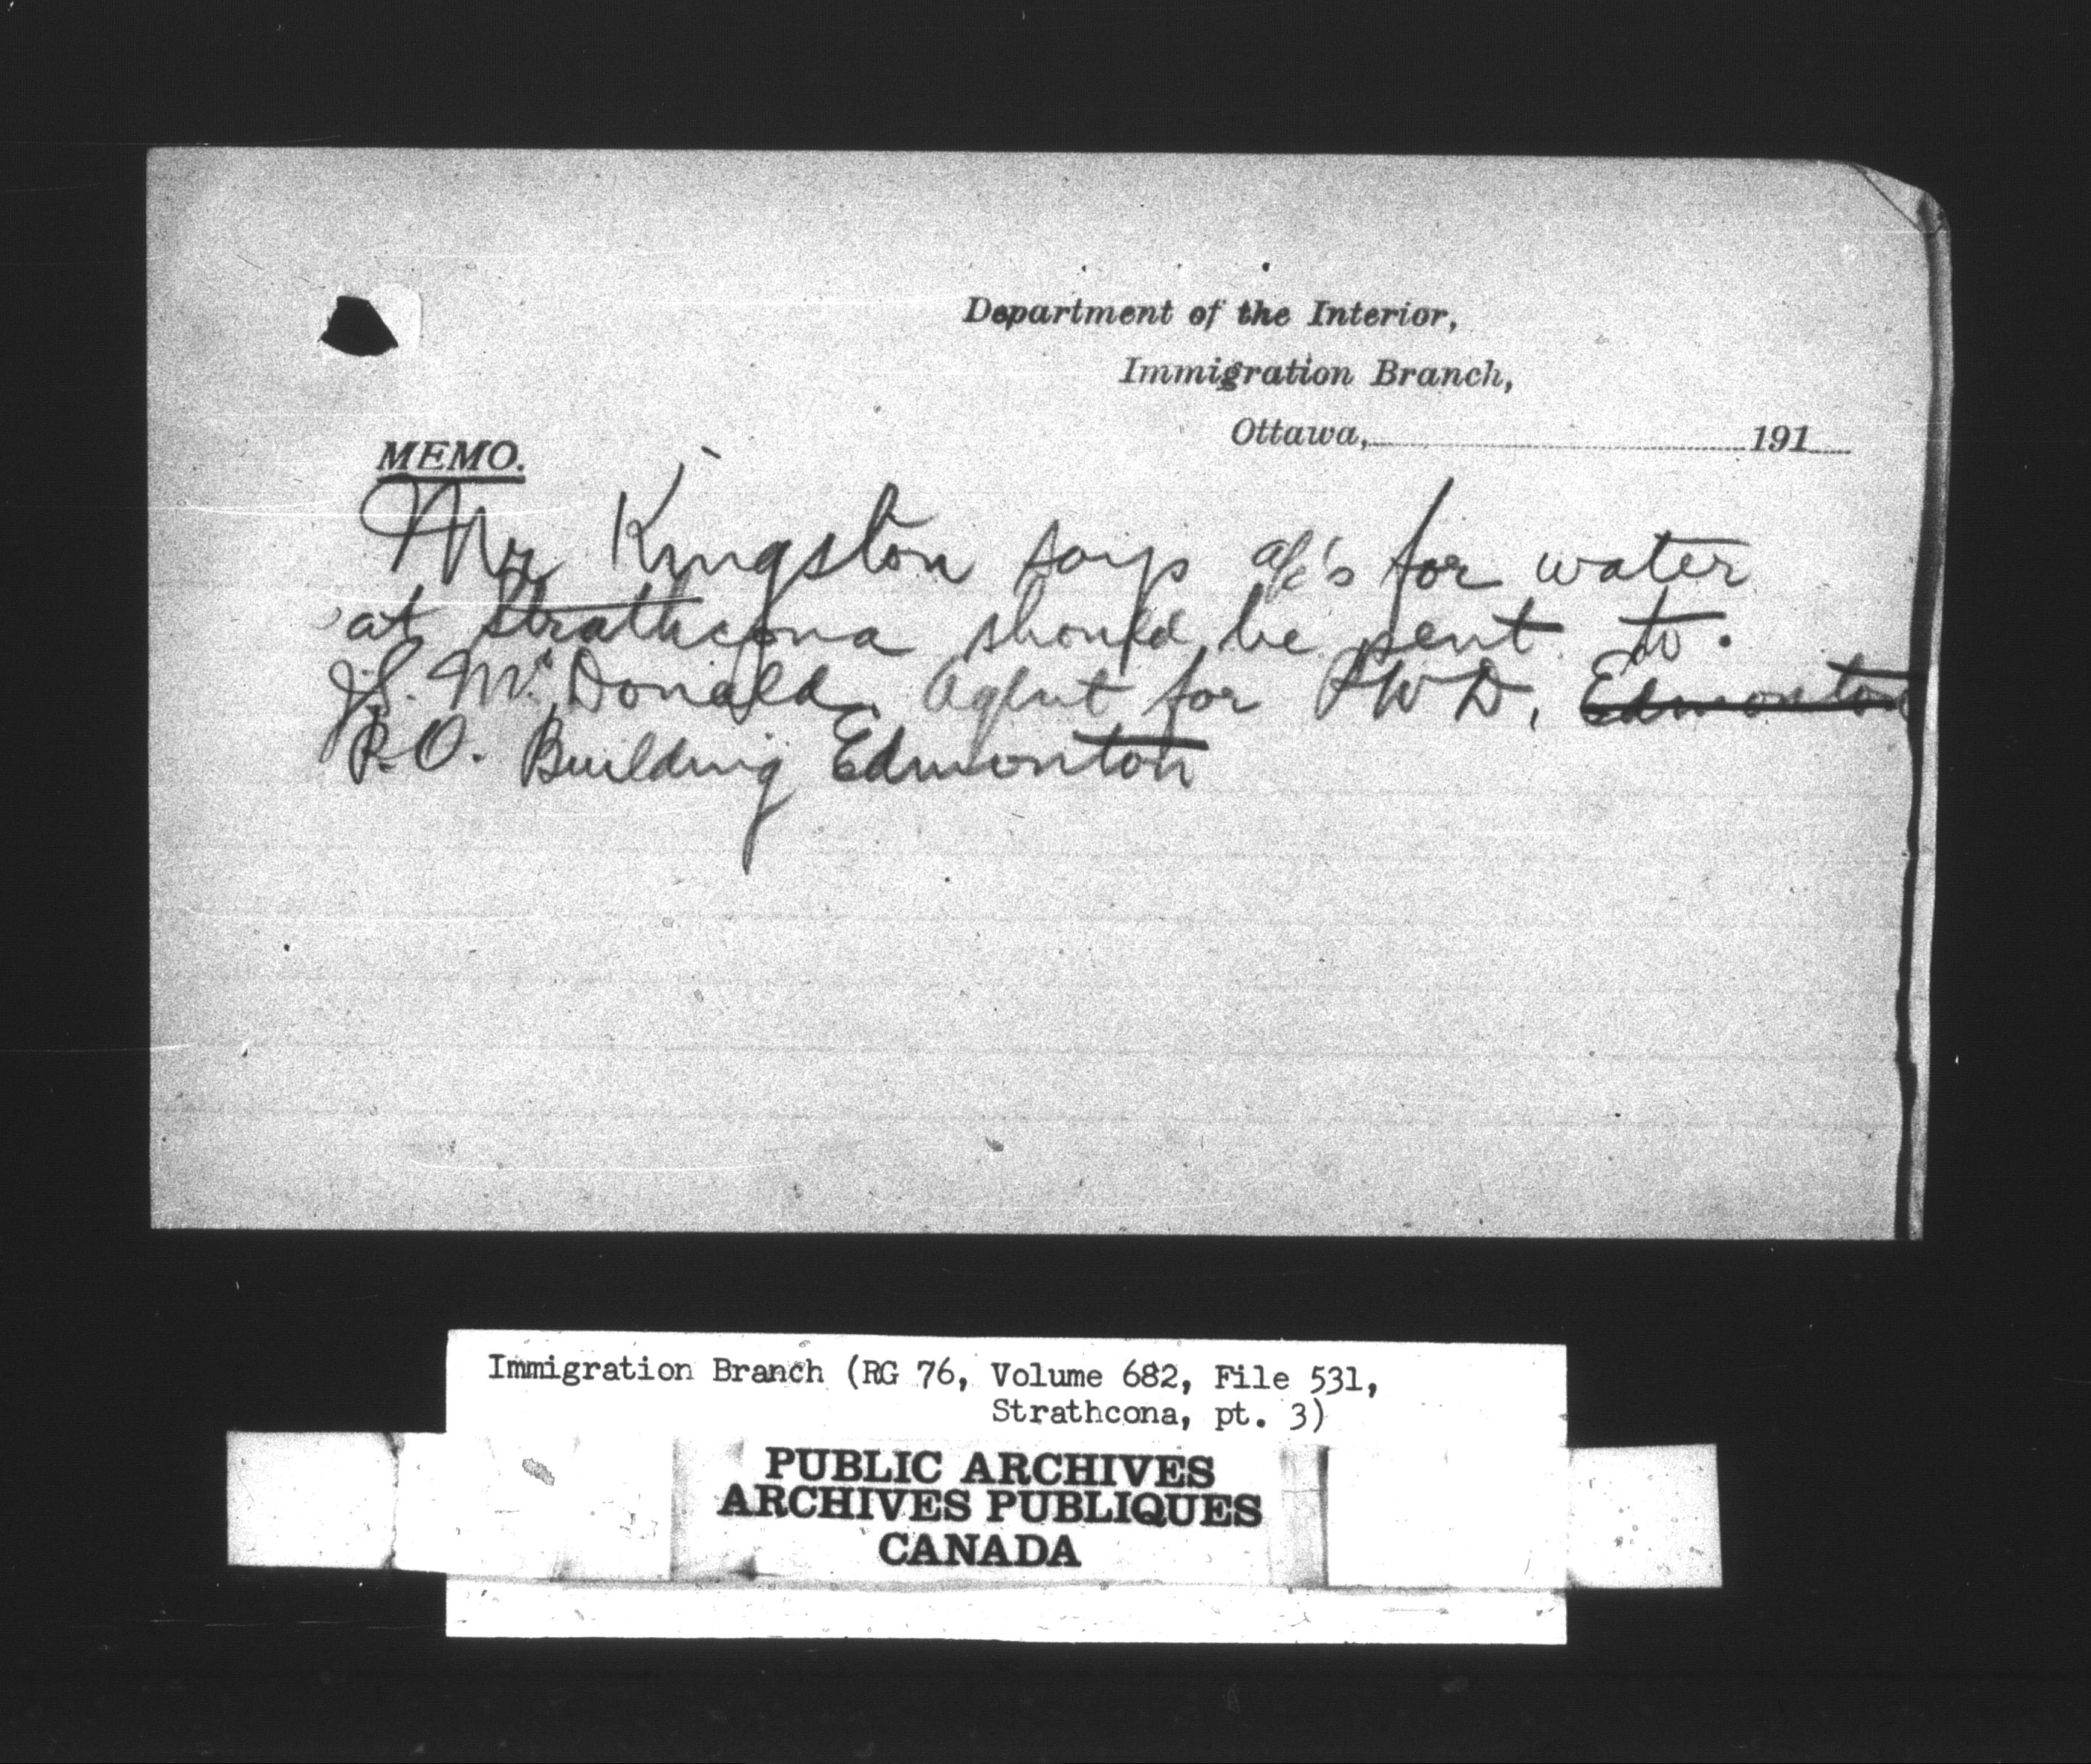 Department of the Interior,
Immigration Branch,
Ottawa, 191
MEMO.
Mr Kingston says a/c's for water
at Strathcona should be sent to.
McDonald, Agent for PWD, Edmonton
P.O. Building Edmonton
Immigration Branch (RG 76, Volume 682, File 531,
Strathcona, pt. 3)
PUBLIC ARCHIVES
ARCHIVES PUBLIQUES
CANADA